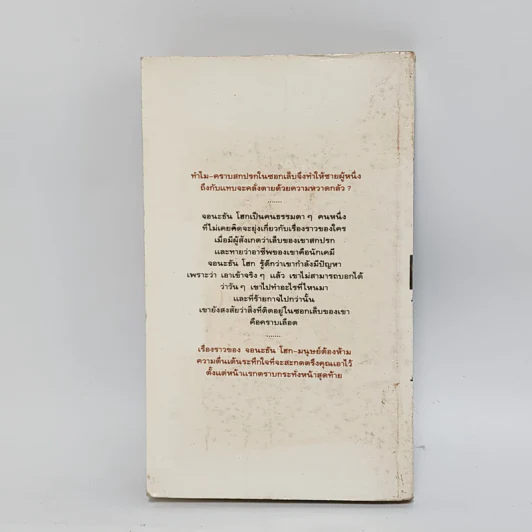 ทำไม-คราบสกปรกในซอกเล็บจึงทำให้ชายผู้หนึ่ง
ถึงกับแทบจะคลั่งตายด้วยความหวาดกลัว ?
.......
จอนะธัน โฮกเป็นคนธรรมดา ๆ คนหนึ่ง
ที่ไม่เคยคิดจะยุ่งเกี่ยวกับเรื่องราวของใคร
เมื่อมีผู้สังเกตว่าเล็บของเขาสกปรก
และทายว่าอาชีพของเขาคือนักเคมี
จอนะธัน โฮก รู้สึกว่าเขากำลังมีปัญหา
เพราะว่า เอาเข้าจริง ๆ แล้ว เขาไม่สามารถบอกได้
ว่าวัน ๆ เขาไปทำอะไรที่ไหนมา
และที่ร้ายกาจไปกว่านั้น
เขายังสงสัยว่าสิ่งที่ติดอยู่ในซอกเล็บของเขา
คือคราบเลือด
.......
เรื่องราวของ จอนะธัน โฮก-มนุษย์ต้องห้าม
ความตื่นเต้นระทึกใจที่จะสะกดตรึงคุณเอาไว้
ตั้งแต่หน้าแรกตราบกระทั่งหน้าสุดท้าย